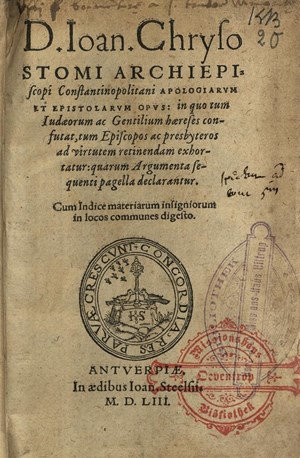 D. Ioan. Chryso
STOMI ARCHIEPI-
scopi Constantinopolitani APOLOGIARVM
ET EPISTOLARVM OPVS: in quo tum
Iudæorum ac Gentilium hæreses con-
futat, tum Episcopos ac presbyteros
ad virtutem retinendam exhor-
tatur: quarum Argumenta se-
quenti pagella declarantur.
Cum Indice materiarum insigniorum
in locos communes digesto.
CONCORDIA RES PARVÆ CRESCVNT
HS
ANTVERPIÆ,
In ædibus Ioan. Steelsii.
M. D. LIII.
Missionshaus
Deventrop
Bibliothek
20